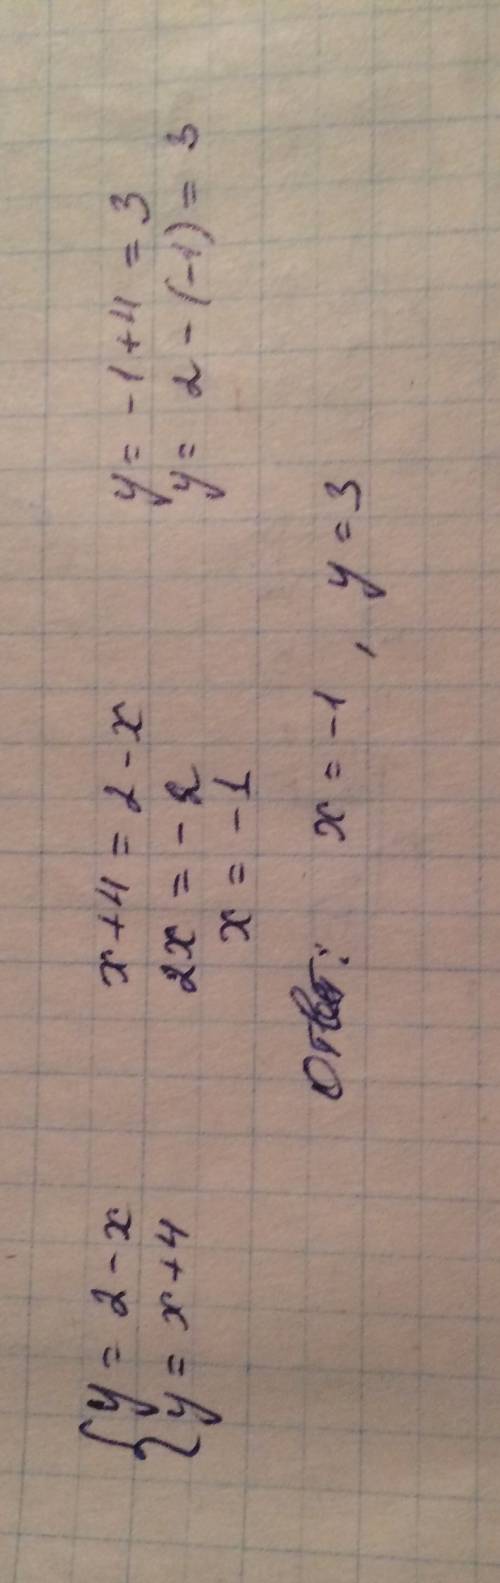 { y = 2 - x
y = x + 4
x + 4 = 2 - x
2x = - 2
x = - 1
y = -1 + 4 = 3
y = 2 - (-1) = 3
Ответ: x = -1 , y = 3